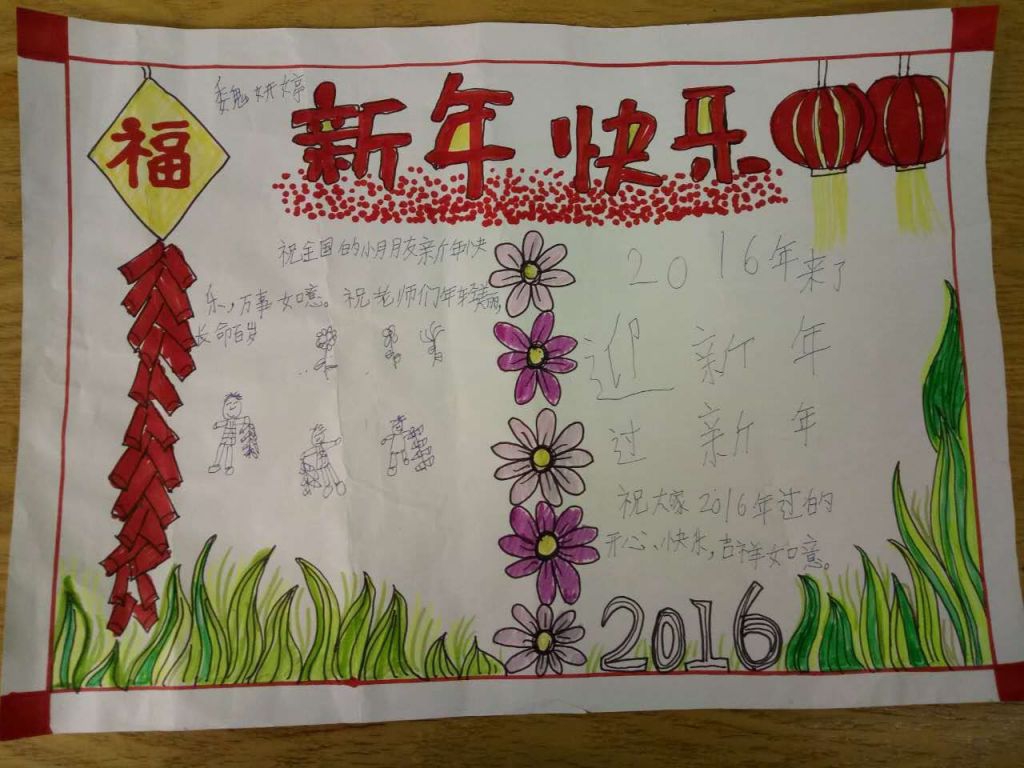 福
魏妍婷
新年快乐
祝全国的小月月友亲斤年快
乐，万事如意。祝老师们年轻美丽，
长命百岁
2016年来了
迎新年
过新年
祝大家2016年过的
开心、快乐，吉祥如意。
2016